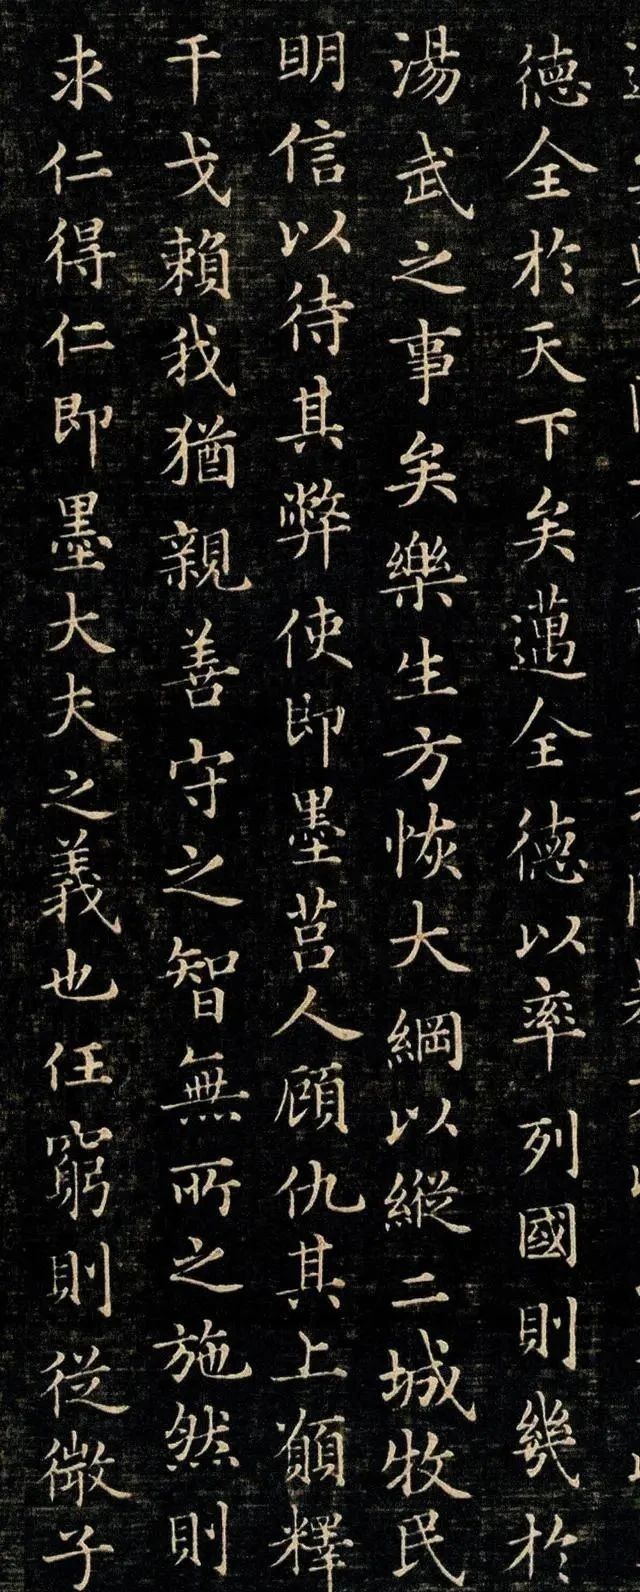 德全於天下矣邁全德以率列國則幾於
湯武之事矣樂生方恢大綱以縱二城牧民
明信以待其弊使即墨莒人顧仇其上願釋
干戈賴我猶親善守之智無所之施然則
求仁得仁即墨大夫之義也任窮則從微子